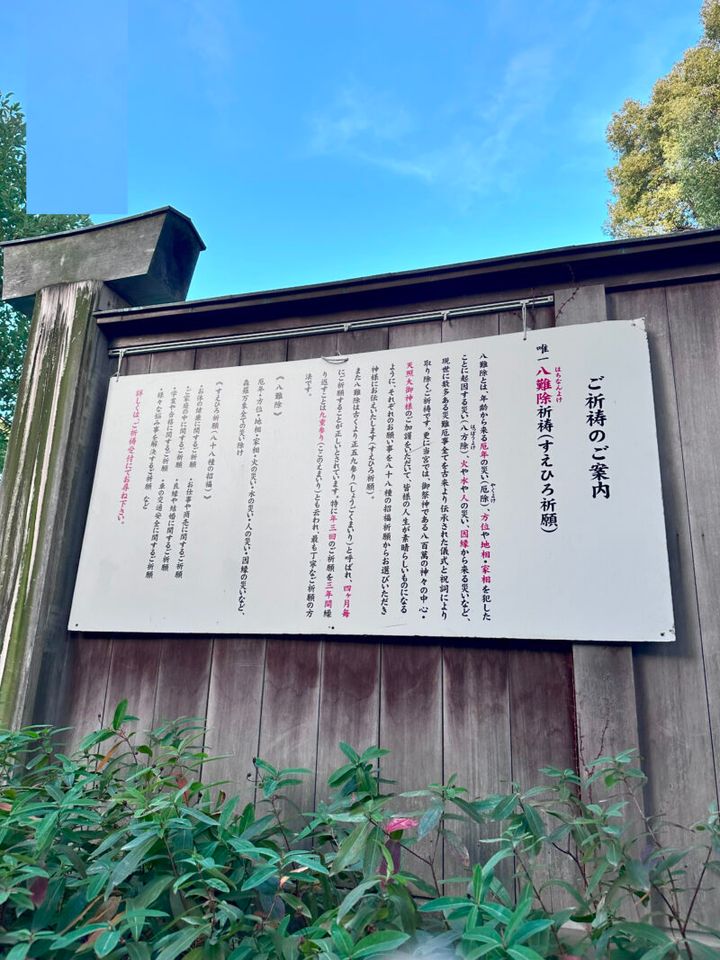 ご祈祷のご案内
唯一八難除祈祷(すえひろ祈願)
はちなんよけ
八難除とは、年齢から来る厄年の災い(厄除)、方位や地相・家相を犯した
やくよけ
ことに起因する災い(八方除)、火や水や人の災い、因縁から来る災いなど、
はっぽうよけ
現世に数多ある災難厄事全てを古来より伝承された儀式と祝詞により
取り除くご祈祷です。更に当宮では、御祭神である八百萬の神々の中心・
天照大御神様のご加護をいただいて、皆様の人生が素晴らしいものになる
ように、それぞれのお願い事を八十八種の招福祈願からお選びいただき
神様にお伝えいたします(すえひろ祈願)。
また八難除は古くより正五九参り(しょうごくまいり)と呼ばれ、四ヶ月毎
にご祈願することが正しいとされています。特に年三回のご祈願を三年間繰
り返すことは九重参り(ここのえまいり)とも云われ、最も丁寧なご祈願の方
法です。
《八難除》
厄年・方位・地相・家相・火の災い・水の災い・人の災い・因縁の災いなど、
森羅万象全ての災い除け
《すえひろ祈願(八十八種の招福)》
・お体の健康に関するご祈願　・お仕事や商売に関するご祈願
・ご家庭の中に関するご祈願　・良縁や結婚に関するご祈願
・学業や合格に関するご祈願　・車の交通安全に関するご祈願
・様々な悩み事を解決するご祈願　など
詳しくは、ご祈祷受付にてお尋ね下さい。